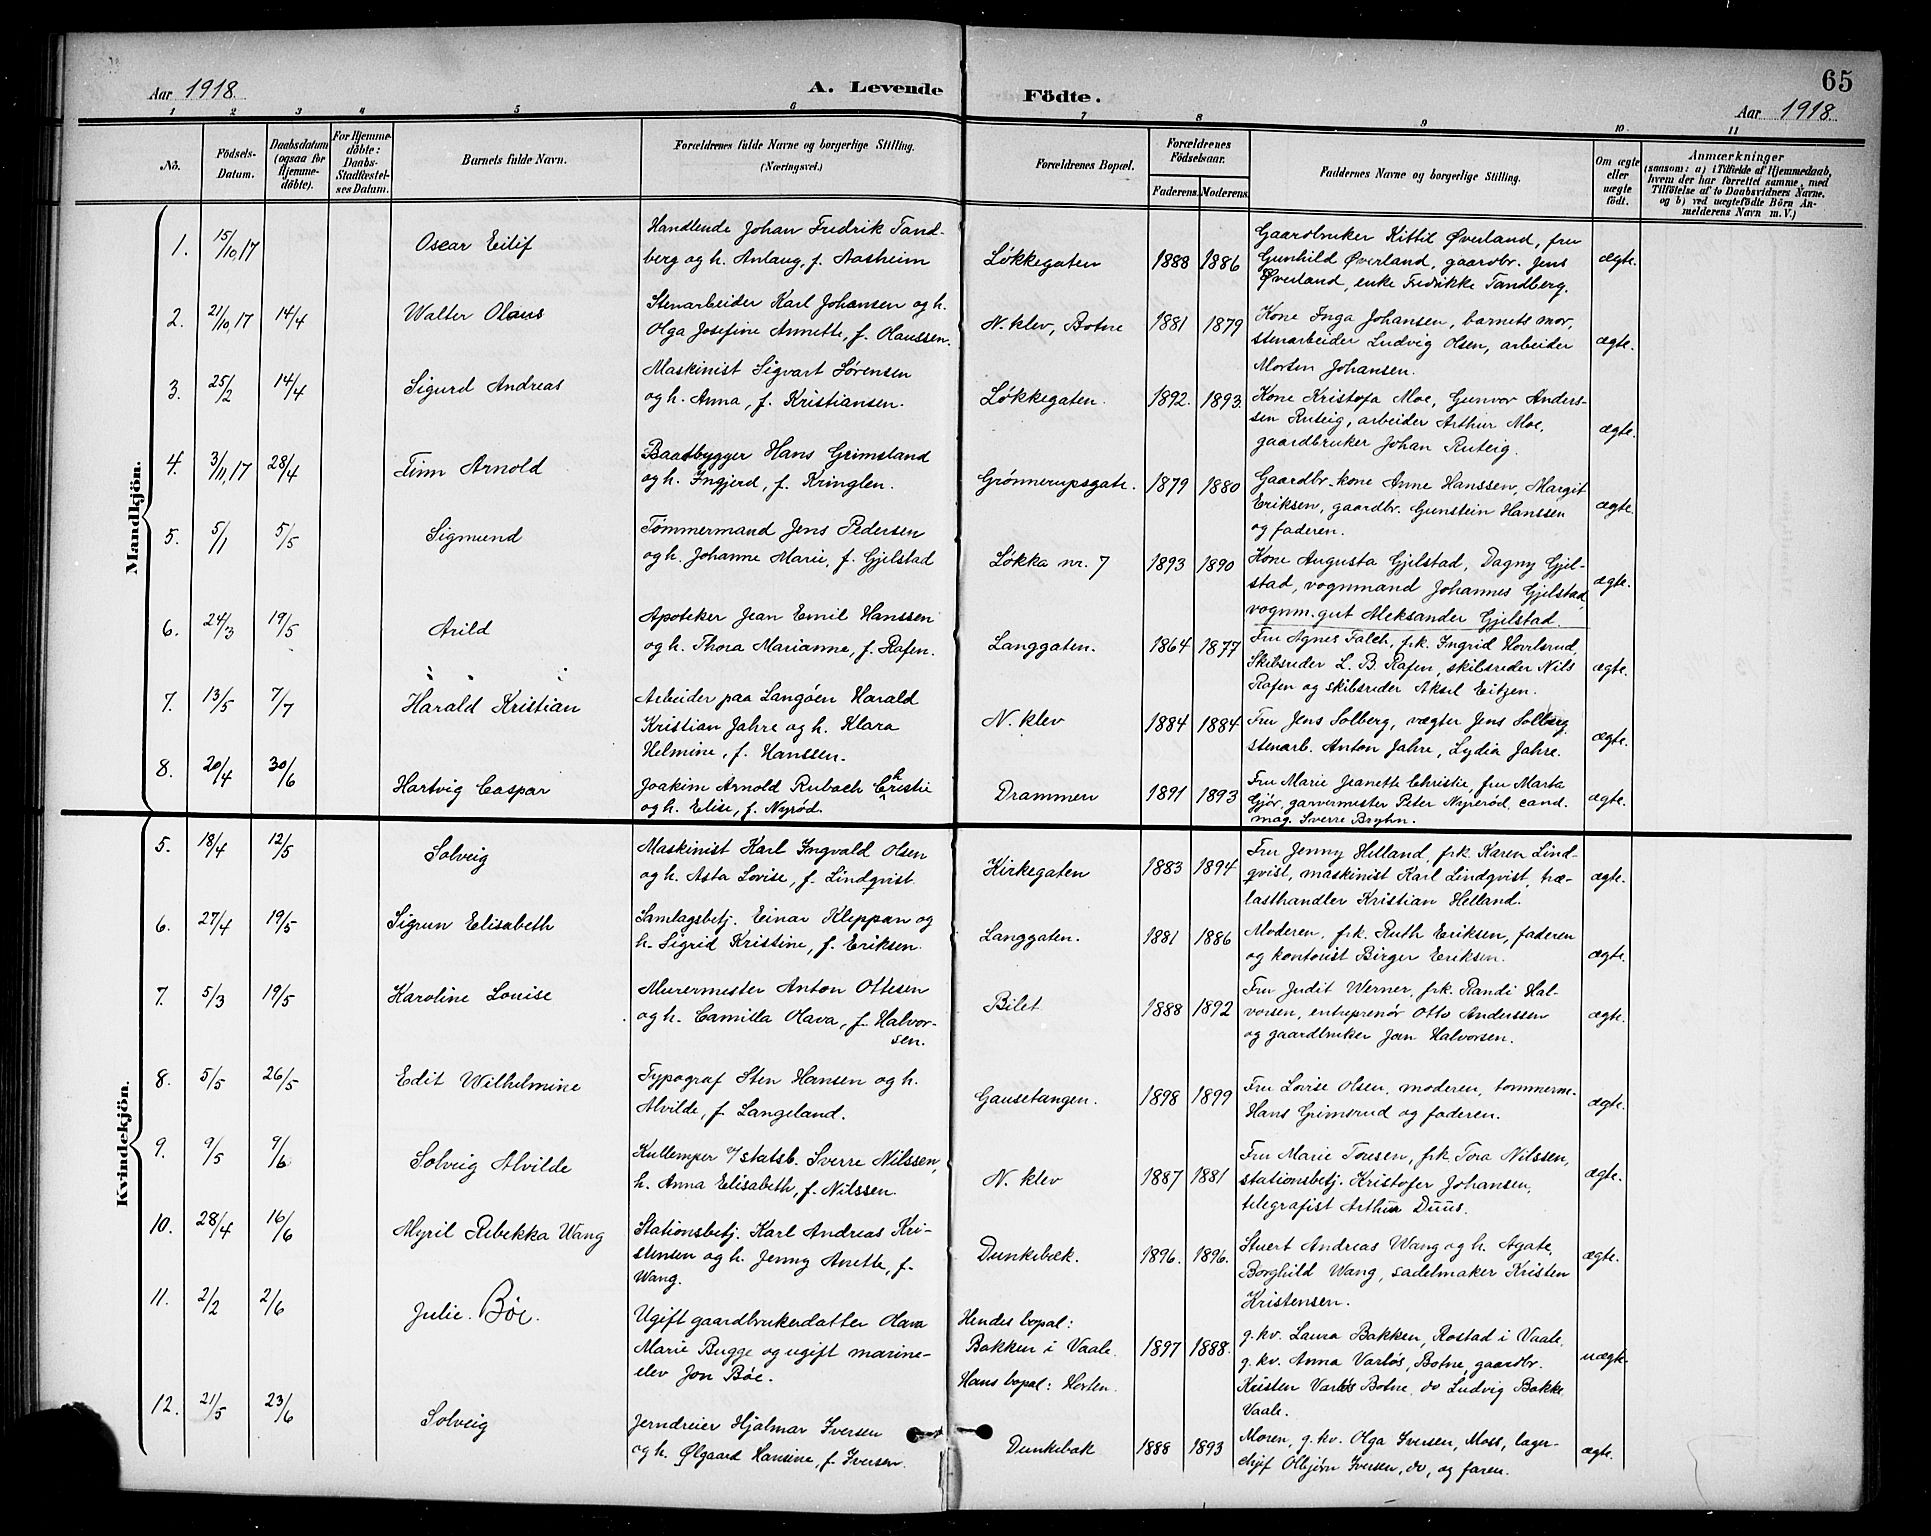 65
Aar 1918. A. Levende Födte. Aar 1918.
1 2 3 4 5 6 7 8 9 10 11
No.
Födsels-Datum.
Daabsdatum (ogsaa for Hjemmedöbte).
For Hjemmedöbte: Daabs-Stadfæstelses Datum.
Barnets fulde Navn.
Forældrenes fulde Navne og borgerlige Stilling.
(Næringsvei.)
Forældrenes Bopæl.
Forældrenes Födselsaar.
Faderens. Moderens.
Faddernes Navne og borgerlige Stilling.
Om ægte eller uægte födt.
Anmærkninger
(saasom: a) i Tilfælde af Hjemmedaab, hvem der har forrettet samme, med Tilföielse af to Daabsvidners Navne. og b) ved uægtefödte Börn Anmelderens Navn m. V.)
Mandkjön.
1. 15/10,17 Oscar Eilif
Handlende Johan Fredrik Tand-
berg og h. Anlaug, f. Aasheim
Løkkegaten 1888 1886
Gaardbruker Kittil Øverland, fru
Gunhild Øverland, gaardbr. Jens
Øverland, enke Fredrikke Tandberg.
ægte.
2. 21/10,17 14/4 Walter Olaus
Stenarbeider Karl Johansen og h.
Olga Josefine Annette, f. Olaussen.
N. klev, Botne 1881 1879
Kone Inga Johansen, barnets mor,
stenarbeider Ludvig Olsen, arbeider
Morten Johansen.
ægte.
3. 25/2 14/4 Sigurd Andreas
Maskinist Sigvart Sørensen
og h. Anna, f. Kristiansen.
Løkkegaten. 1892. 1893.
Kone Kristofa Moe, Gunvor Anders-
sen Ruteig, arbeider Arthur Moe,
gaardbruker Johan Ruteig.
ægte.
4. 3/11,17 28/4 Finn Arnold
Baadbygger Hans Grimsland
og h. Ingjerd, f. Kringlen.
Grønnerupsgate. 1879 1880
Gaardbr. kone Anne Hanssen, Margit
Eriksen, gaardbr. Gunstein Hanssen
og faderen.
ægte.
5. 5/1 5/5 Sigmund
Tømmermand Jens Pedersen
og h. Johanne Marie, f. Gjelstad
Løkka nr. 7 1893 1890
Kone Augusta Gjelstad, Dagny Gjel-
stad, vognmand Johannes Gjelstad,
vognm. gut Aleksander Gjelstad.
ægte.
6. 24/3 19/5 Arild
Apoteker Jean Emil Hanssen
og h. Thora Marianne, f. Rafen.
Langgaten. 1864 1877
Fru Agnes Falch, frk. Ingrid
Skibsreder L. B. Rafen, skibsreder Nils
Rafen og skibsreder Aksel Eitzen.
ægte.
7. 13/5 7/7 Harald Kristian
Arbeider paa Langøen Harald
Kristian Jahre og h. Klara
Helmine, f. Hanssen.
N. klev 1884 1884
Fru Jens Solberg, vægter Jens Solberg
stenarb. Anton Jahre, Lydia Jahre.
ægte.
8. 20/4 30/6 Hartvig Caspar
Joakim Arnold Rubach Christie
og h. Elise, f. Nyrød.
Drammen 1891 1893
Fru Marie Jeanette Christie, fru Marta
Gjør, garvermester Peter Nyrerød, cand.
mag. Sverre Bryhn.
ægte.
Kvindekjön.
5. 18/4 12/5 Solveig
Maskinist Karl Ingvald Olsen
og h. Asta Lovise, f. Lindqvist
Kirkegaten 1883 1894
Fru Jenny Helland, frk. Karen Lind-
qvist, maskinist Karl Lindqvist, træ-
lasthandler Kristian Helland.
ægte.
6. 27/4 19/5 Sigrun Elisabeth
Samlagsbetj. Einar Kleppan og
h. Sigrid Kristine, f. Eriksen.
Langgaten. 1881 1886
Moderen, frk. Ruth Eriksen, faderen
og kontorist Birger Eriksen.
ægte.
7. 5/3 19/5 Karoline Louise
Murermester Anton Ottesen
og h. Camilla Olava, f. Halvor-
sen.
Bilet 1888 1892
Fru Judit Werner, frk. Randi Hal-
vorsen, entreprenør Otto Anderssen
og gaardbruker Jørn Halvorsen.
ægte.
8. 5/5 26/5 Edit Wilhelmine
Typograf Sten Hansen og h.
Alvilde, f. Langeland.
Gausetangen. 1898 1899
Fru Lovise Olsen, moderen, tømmerm.
Hans Grimsrud og faderen.
ægte.
9. 9/5 9/6 Solveig Alvilde
Kullemper v/ statsb. Sverre Nilssen,
h. Anna Elisabeth, f. Nilssen.
N. klev 1887 1881
Fru Marie Toresen, frk. Tora Nilssen,
stationsbetj. Kristofer Johansen,
telegrafist Arthur Duus.
ægte.
10. 28/4 16/6 Myril Rebekka Wang
Stationsbetj. Karl Andreas Kri-
stensen og h. Jenny Anette, f.
Wang.
Dunkebæk. 1896. 1896.
Stuert Andreas Wang og h. Agate,
Borghild Wang, sadelmaker Kristen
Kristensen.
ægte.
11. 2/2 2/6 Julie. Bøe.
Ugift gaardbrukerdatter Olava
Marie Bugge og ugift marine-
elev Jon Bøe.
Hendes bopal:
Bakken i Vaale.
Hans bopal: Horten.
1897 1888.
g. kv. Laura Bakken, Rostad i Vaale,
g. kv. Anna Varløs, Botne, gaardbr.
Kristen Varløs Botne, do Ludvig Bakke
Vaale.
uægte.
12. 21/5 23/6 Solveig
Jerndreier Hjalmar Iversen
og h. Ølgaard Hansine, f. Iversen.
Dunkebæk 1888 1893
Moren, g. kv. Olga Iversen, Moss, lager-
chef Olbjørn Iversen, do, og faren.
ægte.